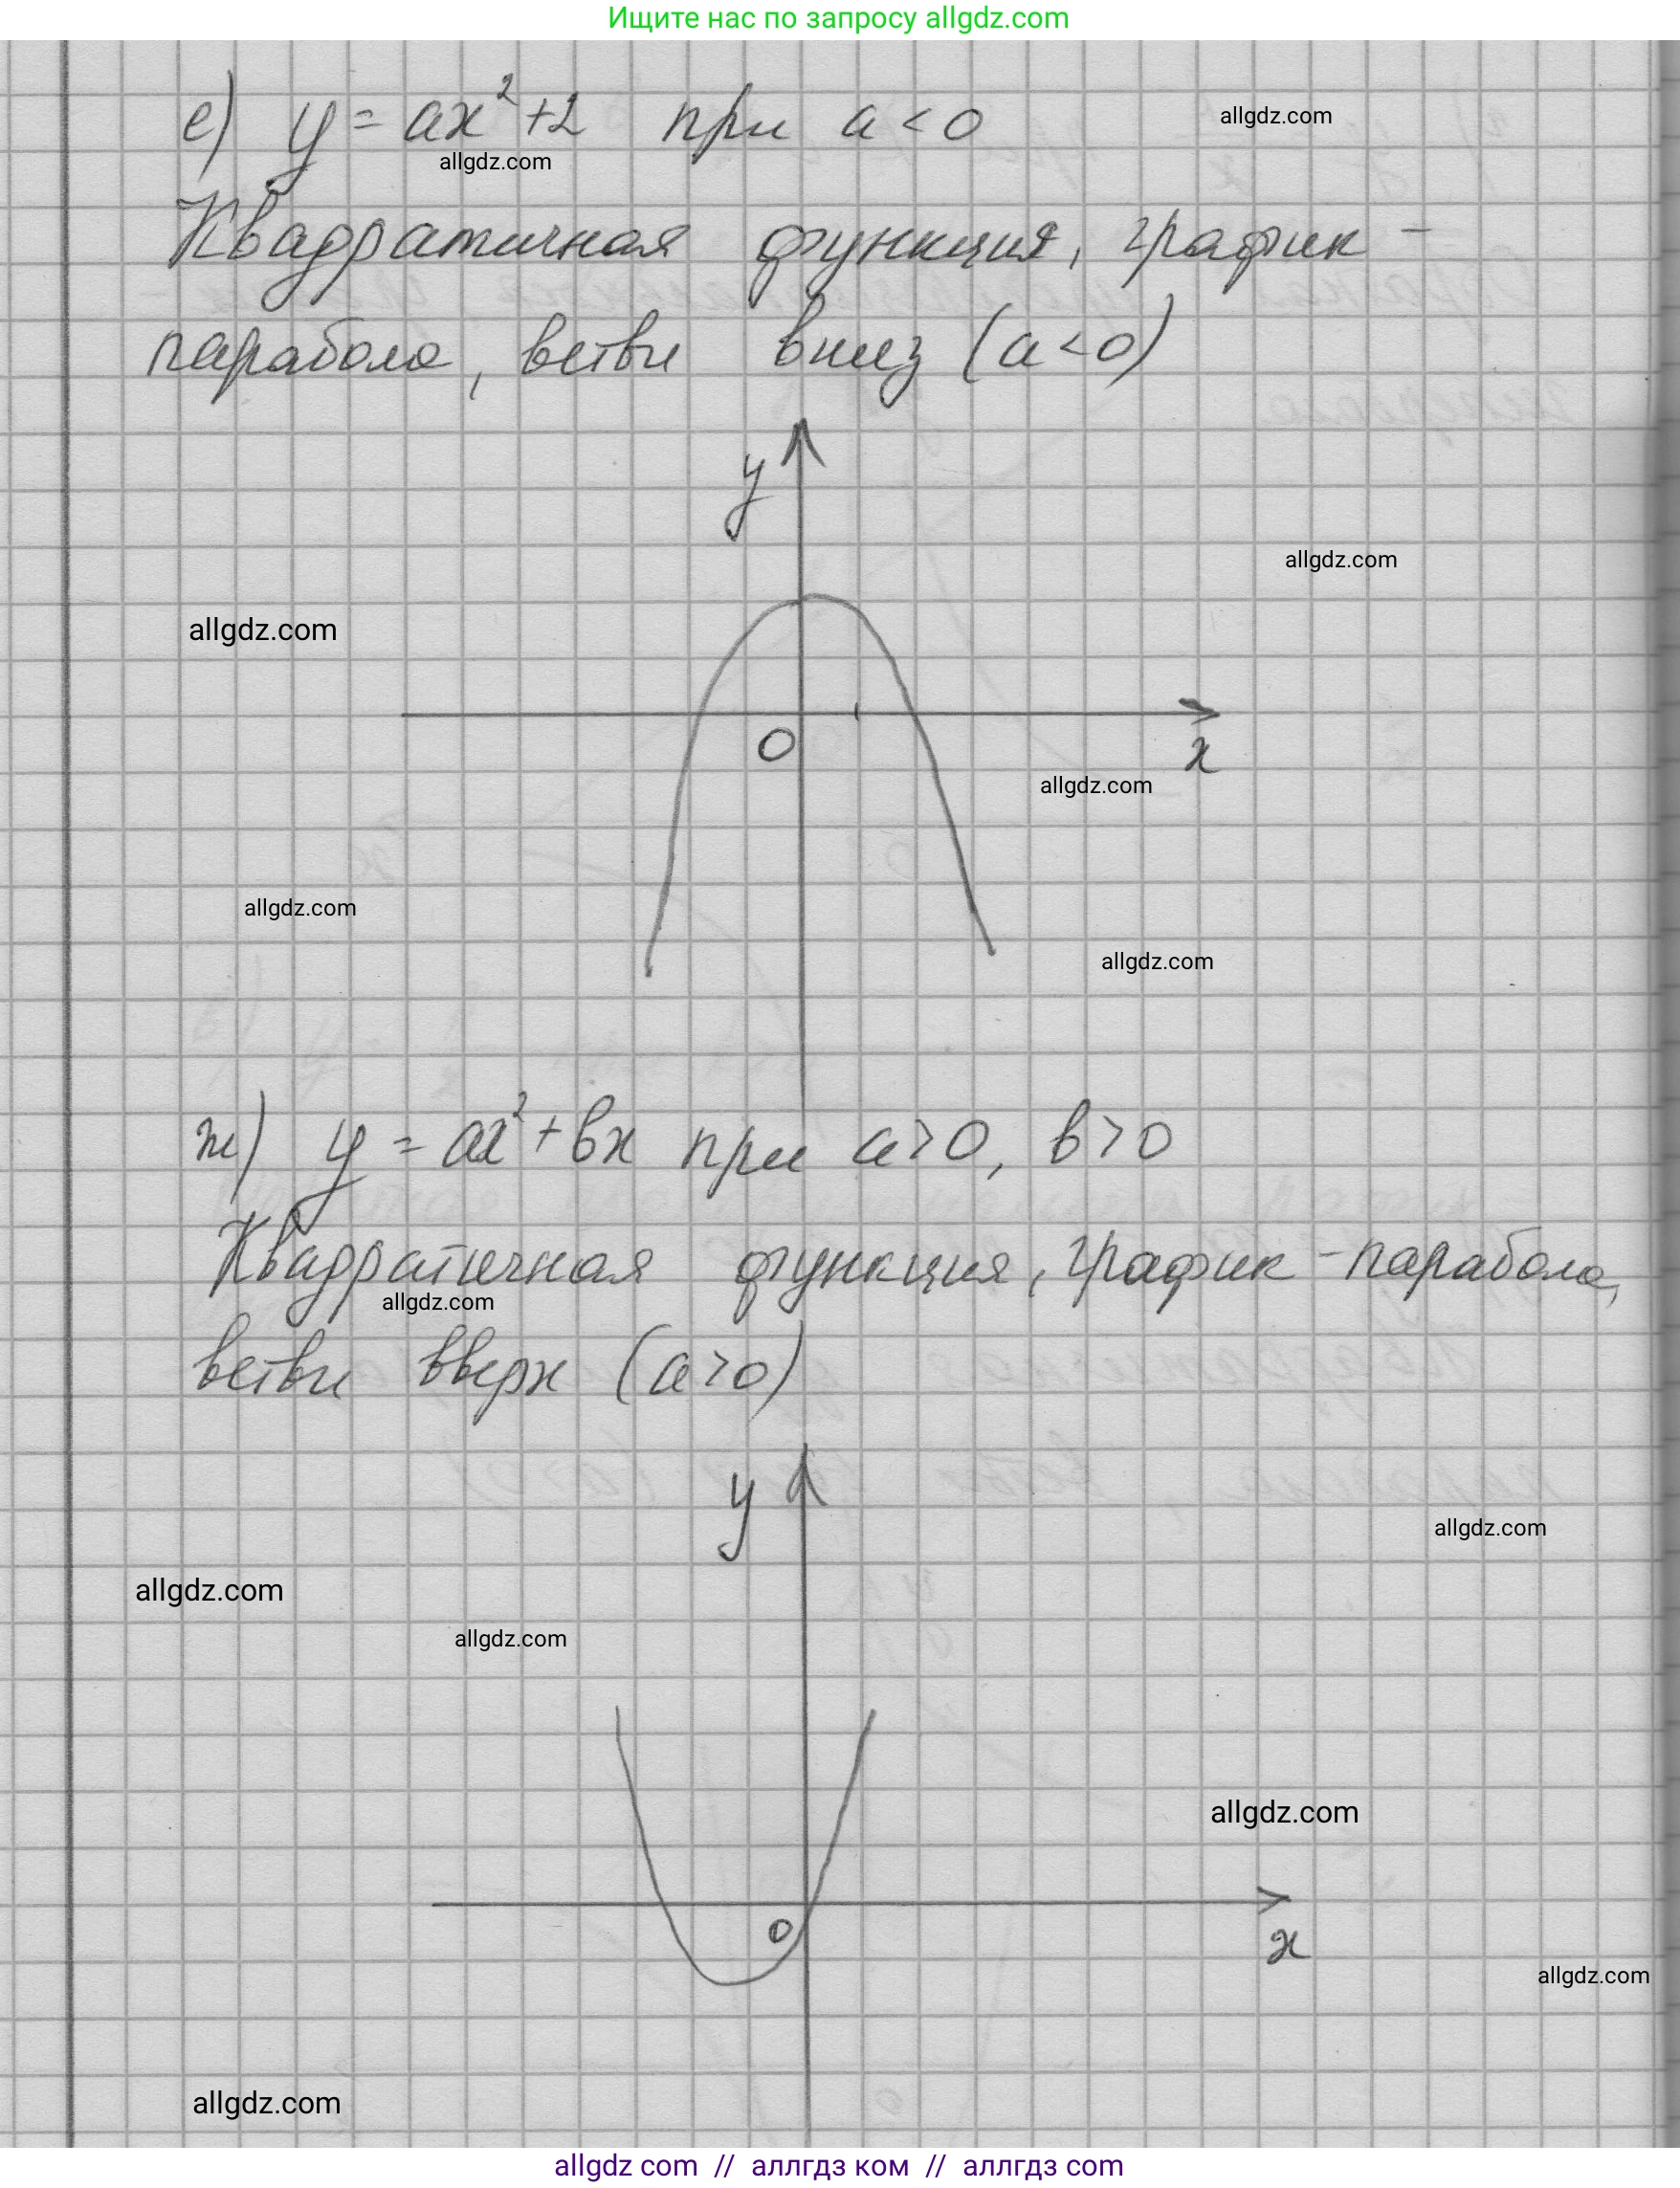 Ищите нас по запросу allgdz.com
е) y = ax² + 2 при a < 0
allgdz.com
allgdz.com
Квадратичная функция, график -
парабола, ветви вниз (a < 0)
y
allgdz.com
allgdz.com
0
x
allgdz.com
allgdz.com
allgdz.com
ж) y = ax² + bx при a > 0, b > 0
Квадратичная функция, график - парабола,
allgdz.com
ветви вверх (a > 0)
y
allgdz.com
allgdz.com
allgdz.com
allgdz.com
0
x
allgdz.com
allgdz.com
allgdz com // аллгдз ком // аллгдз com